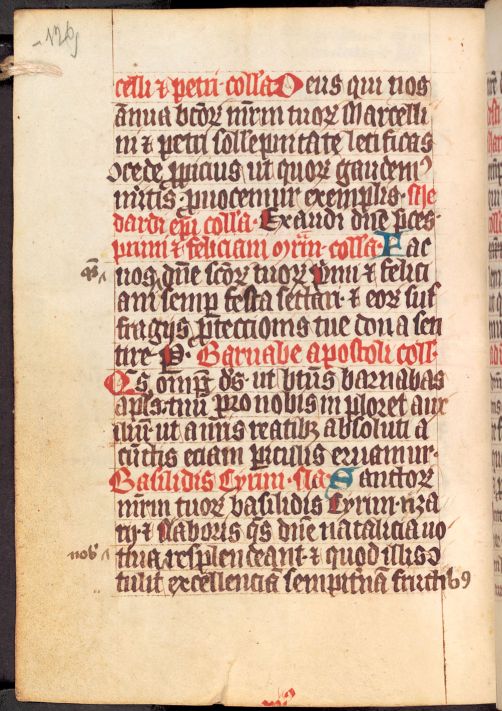 celli ⁊ petri coll̃a Deus qui nos
ānua bt̃oꝝ mr̃m tuoꝝ Marcelli
ni ⁊ petri sollempnitate letificas
ꝯcede ꝓpicius ut quoꝝ gaudem⁹
mitis ꝓuocemur exemplis
dardi ep̃i coll̃a Exaudi dn̄e p̃ces
primi ⁊ feliciani mr̃m coll̃a Fac
qs̄
nos dn̄e sc̃oꝝ tuoꝝ p̃mi ⁊ felici
ani semꝑ festa sectari ⁊ eoꝝ suf
fragijs ꝓtectionis tue dona sen
tire P Barnabe apostoli coll
Qs̄ omp̄s ds̄ ut bt̄us barnabas
apl̃s tuus pro nobis inploret aux
iliū ut a nr̃is reatibꝫ absoluti a
cūctis eciam ꝑiculis eruamur
Basilidis Cyrini Sanctoꝝ
mr̃m tuoꝝ basilidis Cyrini naza
rij ⁊ naboris qs̄ dn̄e natalicia uo
nob̄
tiua resplendeant ⁊ quod illis ꝯ
tulit excellencia sempit̃na fructib⁹